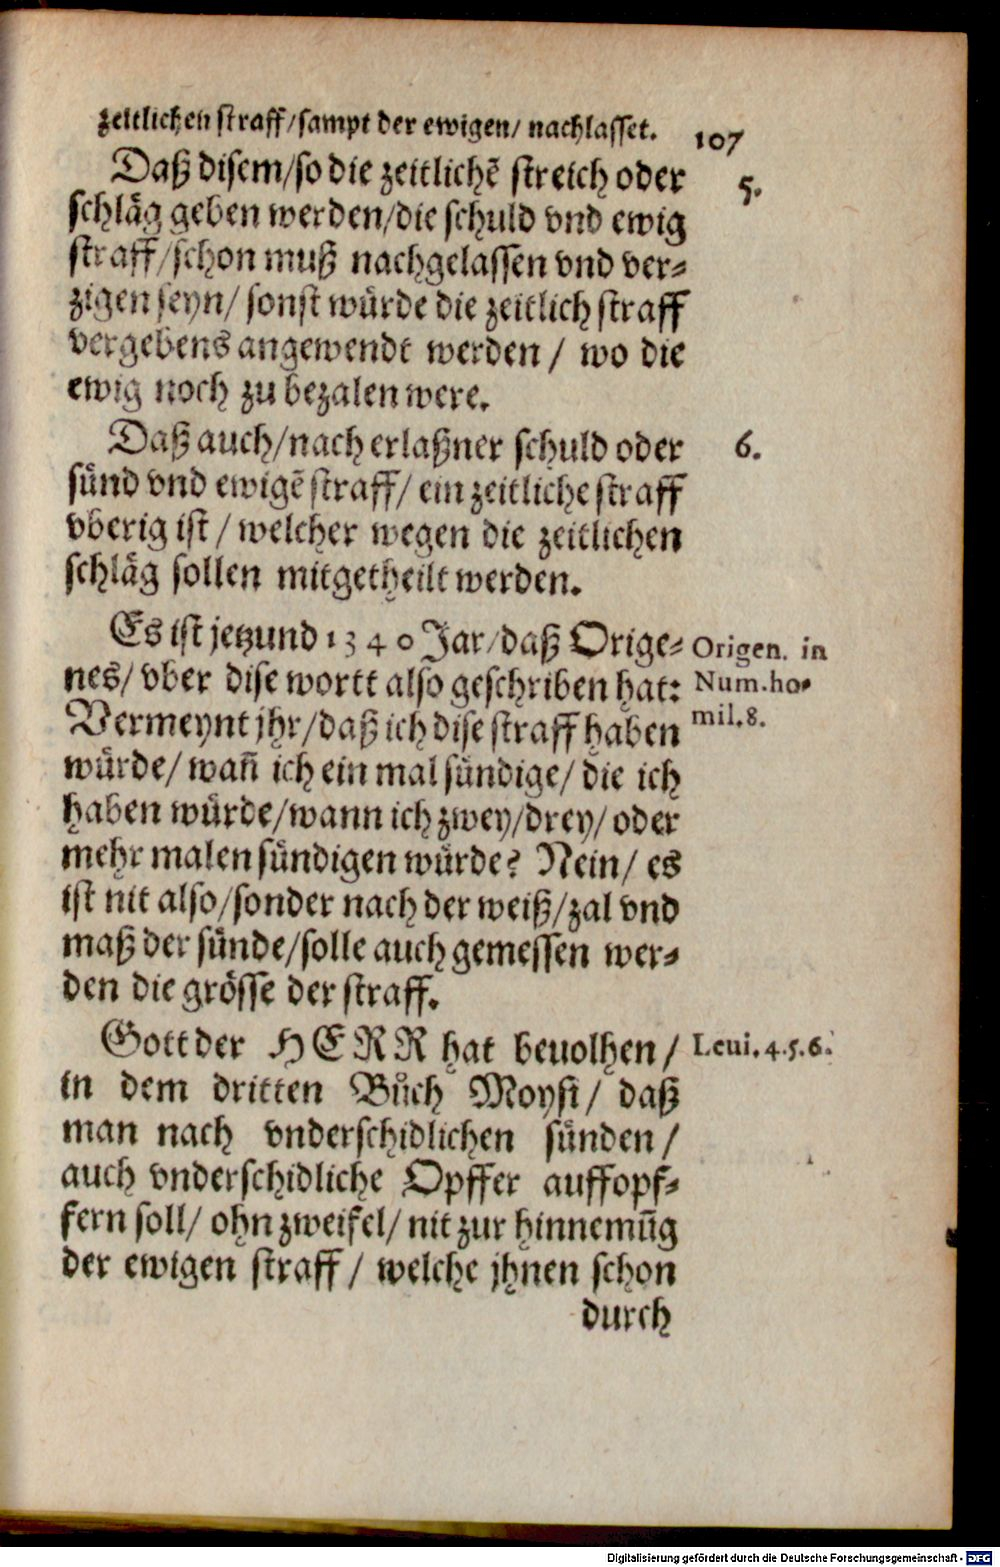 zeitlichen straff/sampt der ewigen/ nachlasset. 107
Daß disem/so die zeitlichē streich oder 5.
schläg geben werden/die schuld vnd ewig
straff/schon muß nachgelassen vnd ver-
zigen seyn/ sonst wuͤrde die zeitlich straff
vergebens angewendt werden / wo die
ewig noch zu bezalen were.
Daß auch/nach erlaßner schuld oder 6.
suͤnd vnd ewigē straff/ ein zeitliche straff
vberig ist / welcher wegen die zeitlichen
schlaͤg sollen mitgetheilt werden.
Es ist jetzund 1340 Jar/daß Orige- Origen. in
nes/ vber dise wortt also geschriben hat: Num.ho-
Vermeynt jhr/daß ich dise straff haben mil.8.
wuͤrde/ wañ ich ein mal suͤndige/ die ich
haben wuͤrde/wann ich zwey/drey/ oder
mehr malen suͤndigen wuͤrde? Nein/ es
ist nit also/sonder nach der weiß/zal vnd
maß der suͤnde/solle auch gemessen wer-
den die groͤsse der straff.
Gott der HERR hat beuolhen / Leui.4.5.6.
in dem dritten Buͦch Moysi/ daß
man nach vnderschidlichen suͤnden /
auch vnderschidliche Opffer auffopf-
fern soll/ ohn zweifel/ nit zur hinnemūg
der ewigen straff / welche jhnen schon
durch
Digitalisierung gefördert durch die Deutsche Forschungsgemeinschaft - DFG